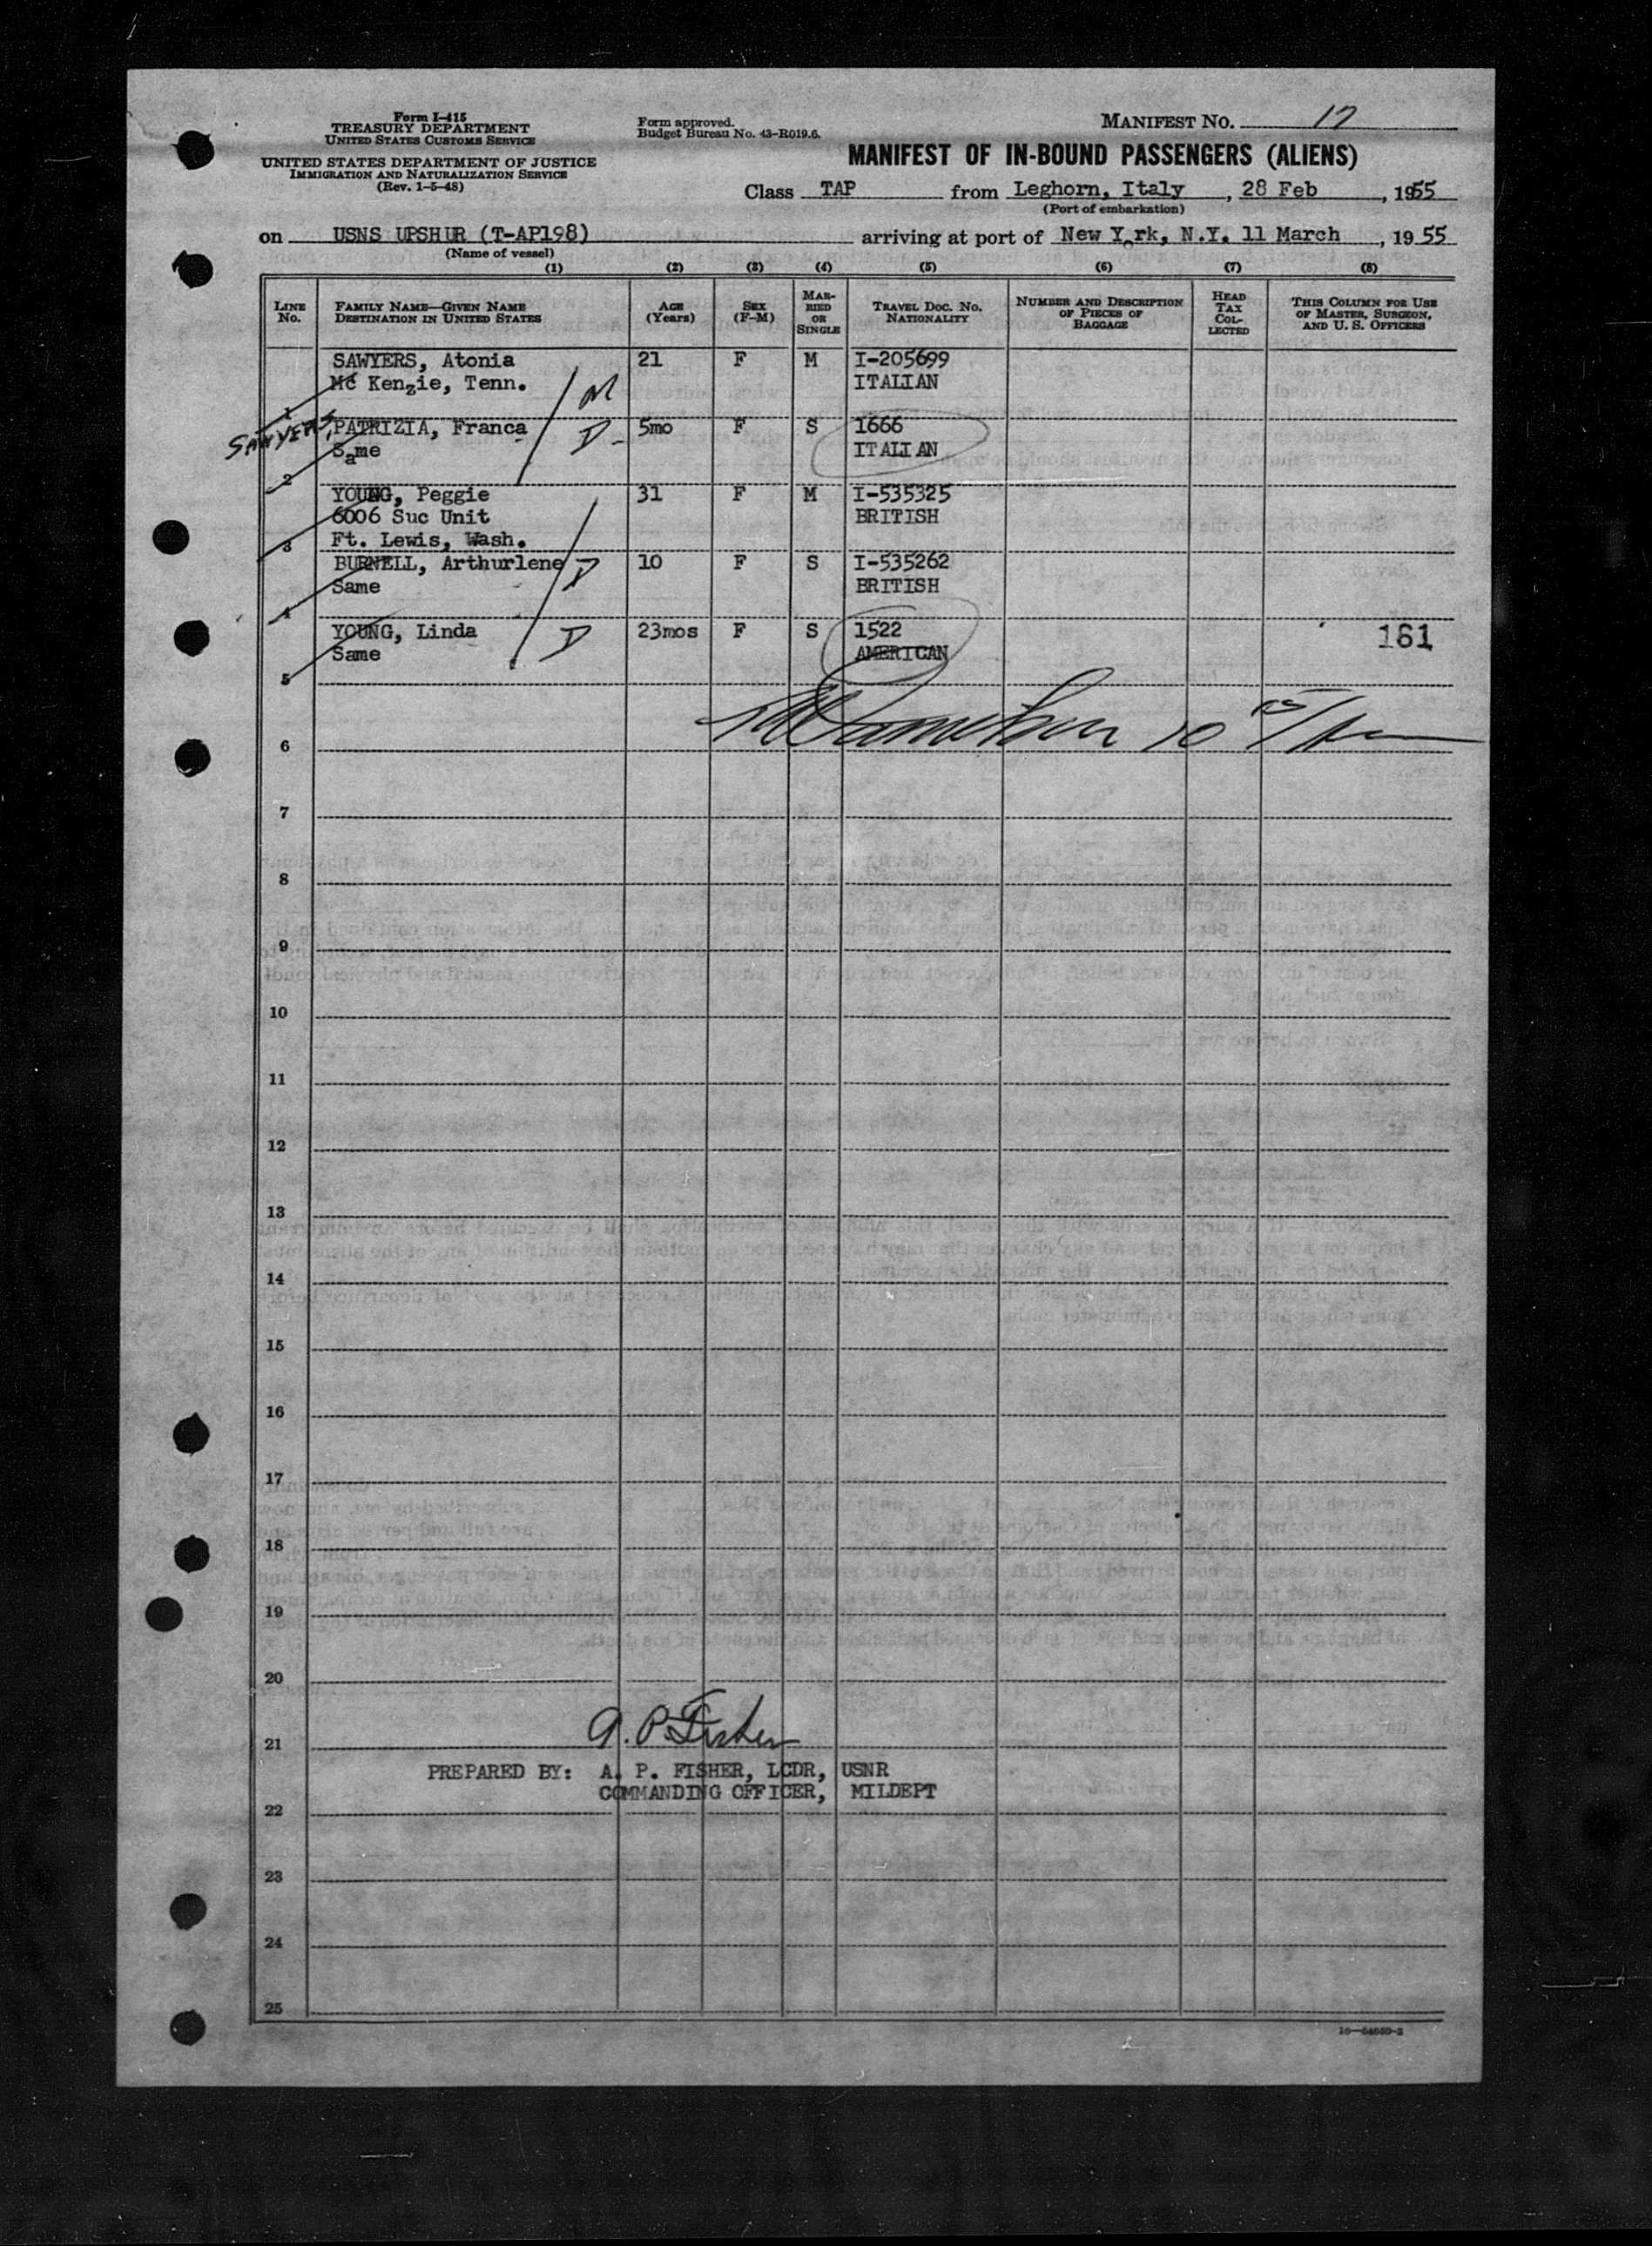 Form I-415
TREASURY DEPARTMENT
UNITED STATES CUSTOMS SERVICE
UNITED STATES DEPARTMENT OF JUSTICE
IMMIGRATION AND NATURALIZATION SERVICE
(Rev. 1-5-48)
Form approved.
Budget Bureau No. 43-R019.6.
MANIFEST NO. 17
MANIFEST OF IN-BOUND PASSENGERS (ALIENS)
Class TAP from Leghorn, Italy, 28 Feb, 1955
(Port of embarkation)
on USNS UPSHUR (T-AP198) arriving at port of New York, N.Y. 11 March, 1955
(Name of vessel)
(1) (2) (3) (4) (5) (6) (7) (8)
LINE No. FAMILY NAME—GIVEN NAME DESTINATION IN UNITED STATES AGE (Years) SEX (F-M) MARRIED OR SINGLE TRAVEL DOC. NO. NATIONALITY NUMBER AND DESCRIPTION OF PIECES OF BAGGAGE HEAD TAX COLLECTED THIS COLUMN FOR USE OF MASTER, SURGEON, AND U. S. OFFICERS
SAWYERS, Atonia 21 F M I-205699
Mc Kenzie, Tenn. M ITALIAN
1
SAWYERS, PATRIZIA, Franca D- 5mo F S 1666
Same ITALIAN
2
YOUNG, Peggie 31 F M I-535325
6006 Suc Unit BRITISH
3 Ft. Lewis, Wash.
BURNELL, Arthurlene D 10 F S I-535262
Same BRITISH
4
YOUNG, Linda D 23mos F S 1522 161
Same AMERICAN
5
6
7
8
9
10
11
12
13
14
15
16
17
18
19
20
A. P. Fisher
21
PREPARED BY: A. P. FISHER, LCDR, USNR
COMMANDING OFFICER, MILDEPT
22
23
24
25